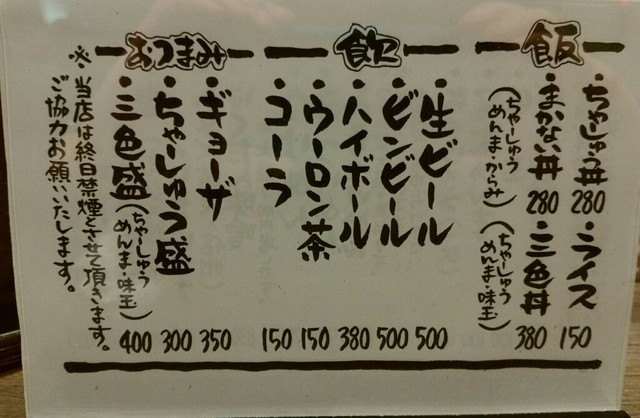 飯
・ちゃしゅう丼 280
・ライス 150
・まかない丼 280
(ちゃーしゅう
めんま・からみ)
・三色丼 380
(ちゃーしゅう
めんま・味玉)
飲
・生ビール 500
・ビンビール 500
・ハイボール 380
・ウーロン茶 150
・コーラ 150
おつまみ
・ギョーザ 350
・ちゃーしゅう盛 300
・三色盛(ちゃーしゅう
めんま・味玉) 400
※当店は終日禁煙とさせて頂きます。
ご協力お願いいたします。